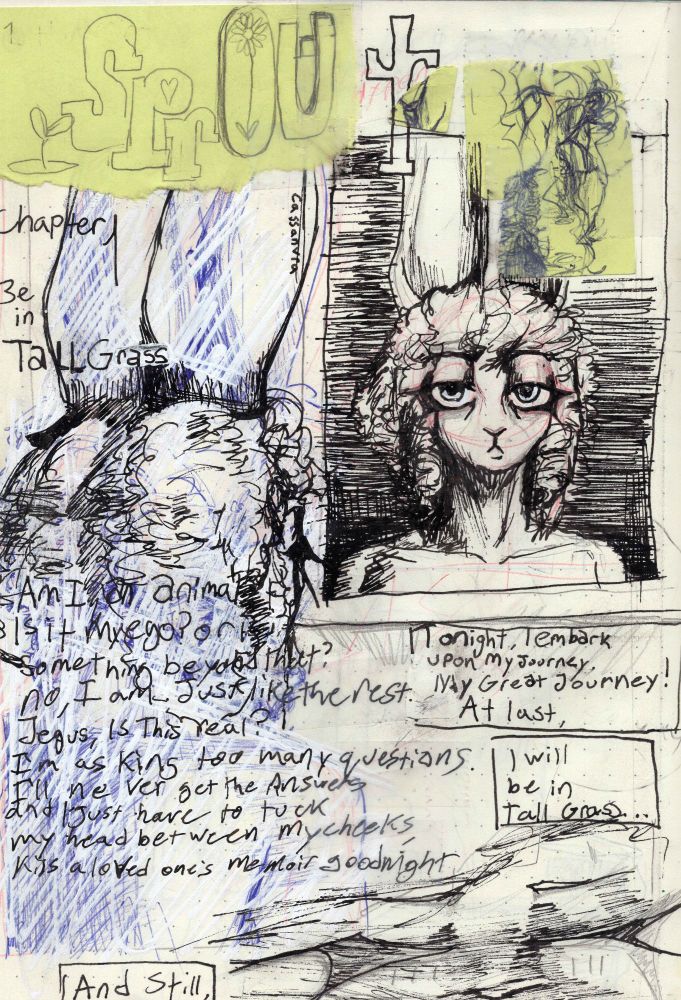 1
SprOUt
Chapter 1
Be
in
TaLL Grass
Am I an animal
Is it My ego? Or
Something beyond that?
no, I am Just like the rest.
Jesus, Is This real?
I'm asking too many questions.
I'll never get the Answers
and I Just have to tuck
my head between my cheeks,
Kiss a loved one's memoir goodnight
Tonight, I embark
upon My Journey,
My Great Journey!
At last,
I will
be in
Tall Grass...
And Still,